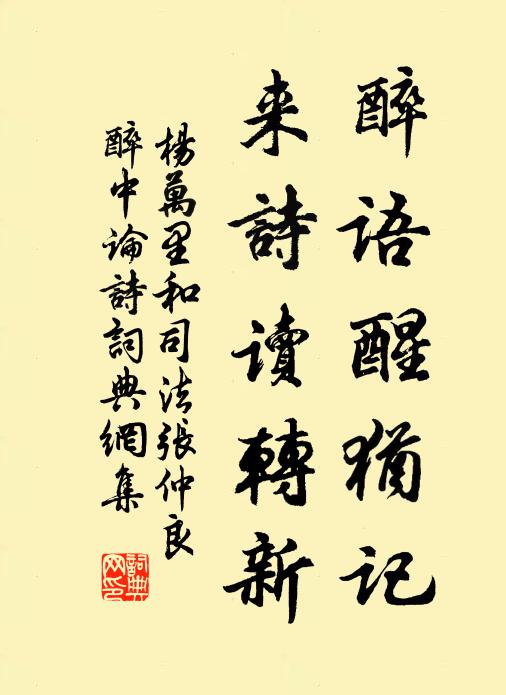 醉语醒猶记
来詩读轉新
楊萬里和司法張仲良
醉中论詩詞典網集
詞典
网印